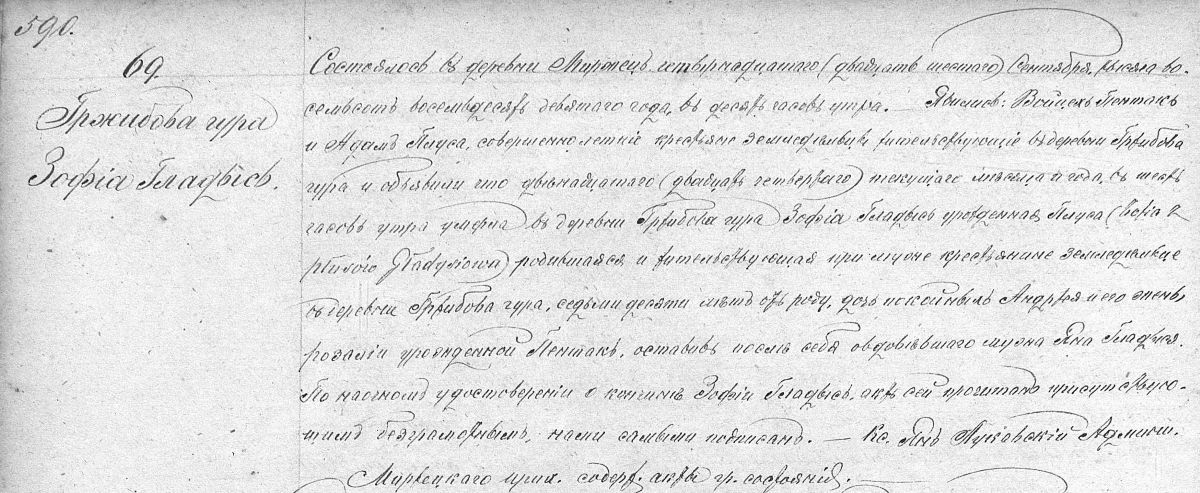 590.
69.
Гржибова гура
Зофіа Гладысь.
Состоялось въ деревни Миржецъ четвернадцатаго (двадцать шестаго) Сентября, тысяча во-
семьсотъ восемьдесятъ девятаго года, въ десять часовъ утра. — Явились: Войцехъ Пентакъ
и Адамъ Плуса, совершеннолетніе крестьяне земледѣльцы жительствующіе въ деревни Гржибова
гура и объявили что двѣнадцатаго (двадцать четвертаго) текущаго мѣсяца и года, въ шесть
часовъ утра умерла въ деревни Гржибова гура Зофіа Гладысь урожденная Плуса (Zofia z
Gładysiowa) родившаяся и жительствующая при мужѣ крестьянине земледѣльце
въ деревни Гржибова гура, седьмидесяти лѣтъ отъ роду, дочь покойныхъ Андрея и его жены
Розаліи урожденной Пентакъ, оставивъ послѣ себя овдовѣвшаго мужа Яна Гладыся.
По наочномъ удостовереніи о кончинѣ Зофіи Гладысь, актъ сей прочитанъ присутствую-
щимъ безграмотнымъ, нами самыми подписанъ. — Кс. Янъ Админ.
Миржецкаго прих. содерж. акты гр. состоянія. —